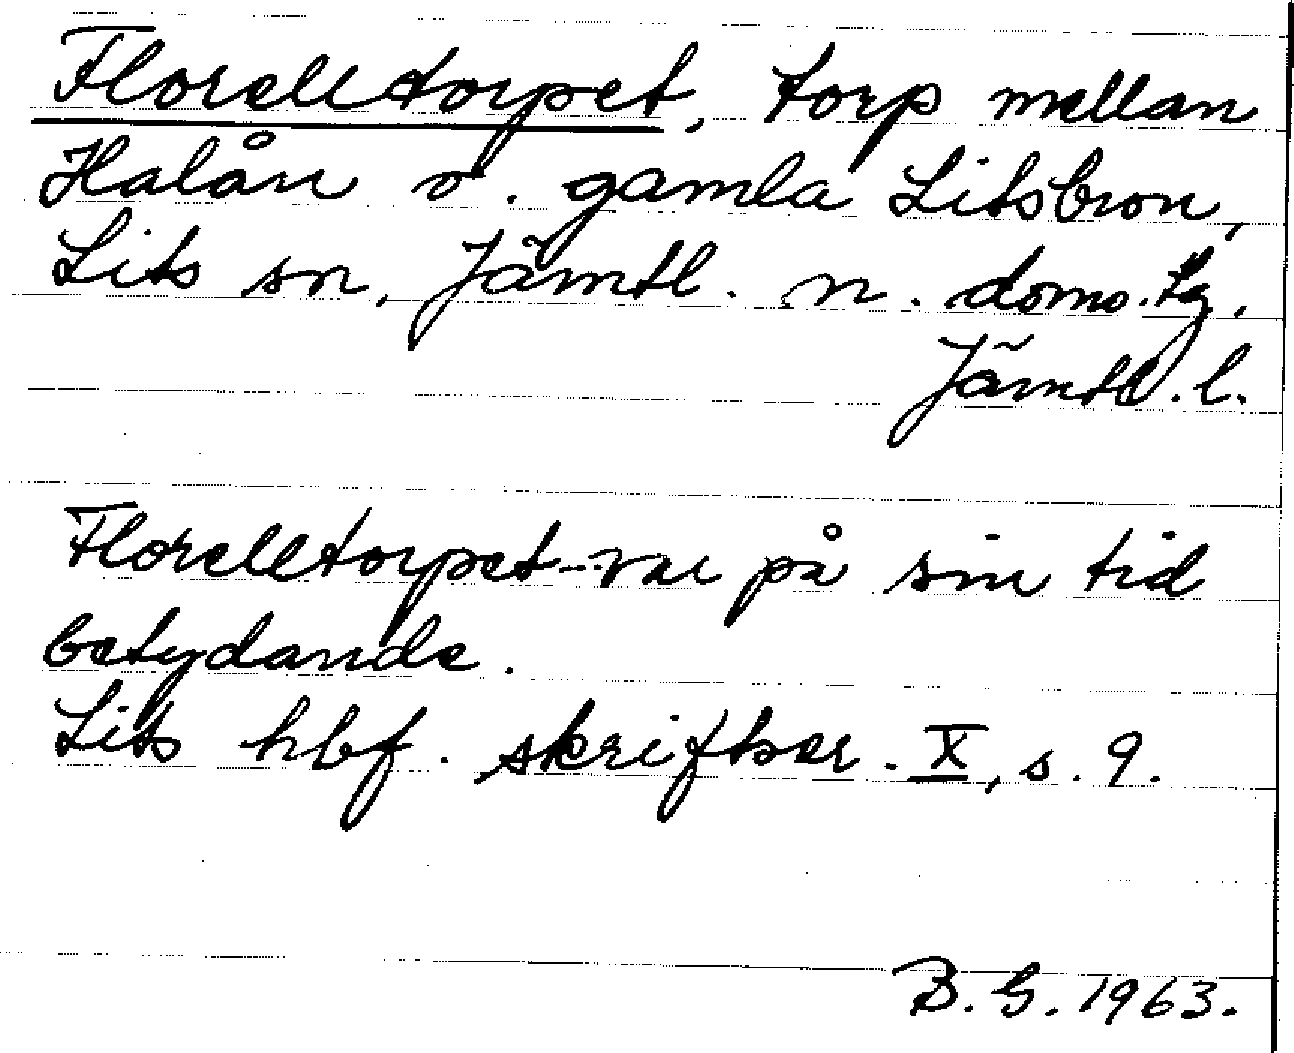 Florelltorpet, torp mellan
Halån o. gamla Litsbron,
Lits sn, Jämtl. n. doms.tg,
Jämtl. l.
Florelltorpet var på sin tid
betydande.
Lits hbf. skriftser. X, s. 9.
B.G. 1963.